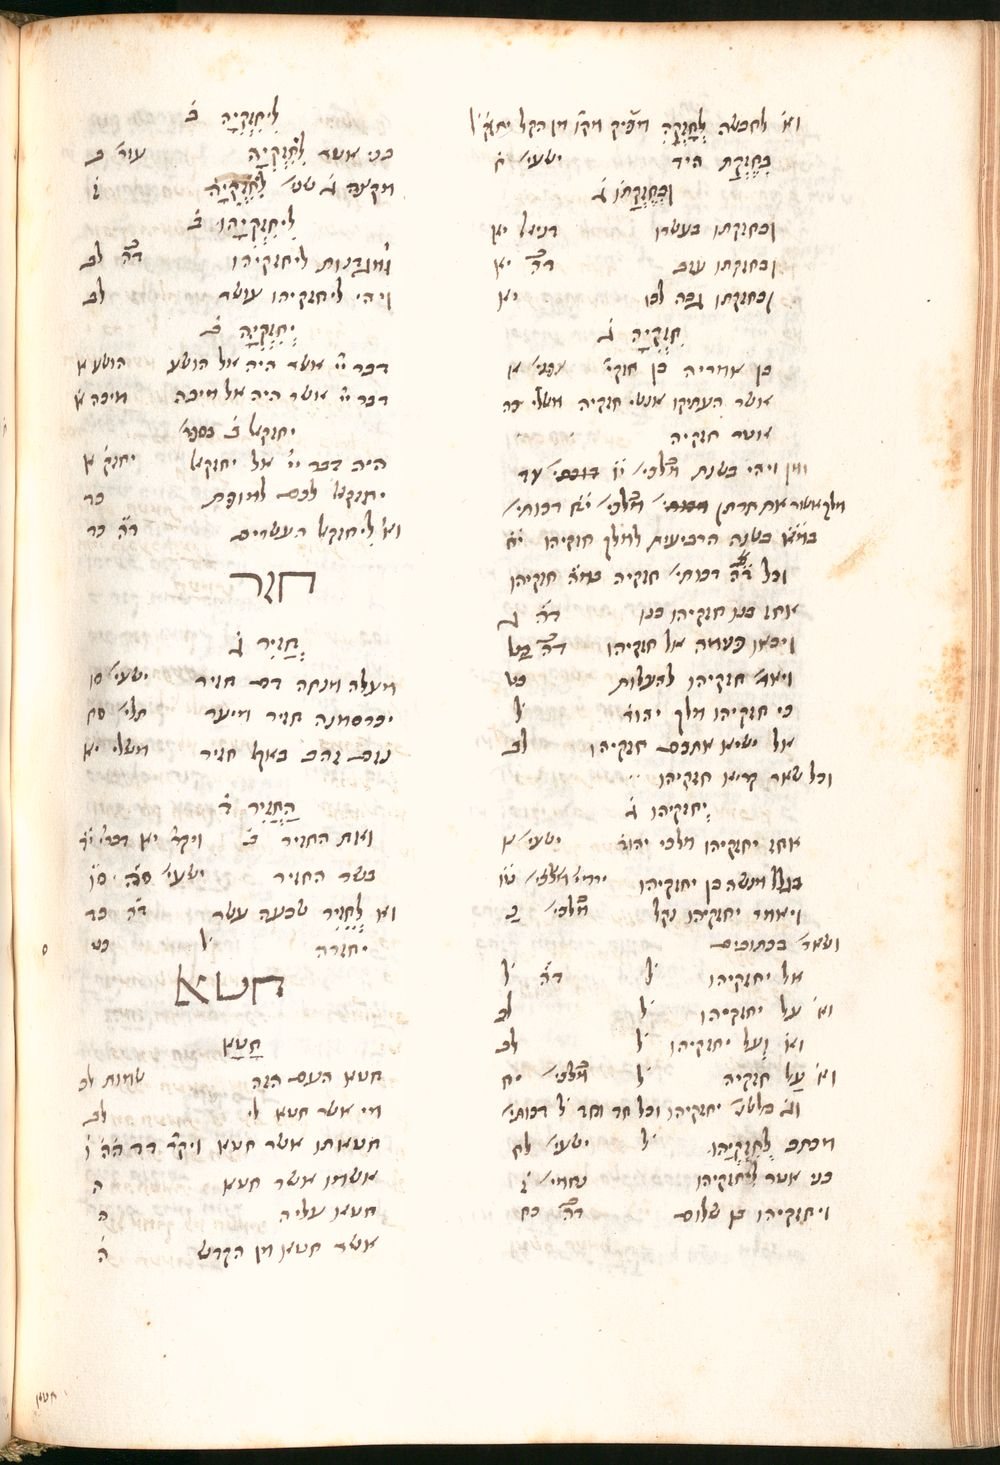 וא׳ לחבשה לְחָזְקָהּ מפיק
בְּחֶזְקַת היד ישעי׳ ח
וּכְחֶזְקָתוֹ ג֗
וכחזקתו בעשרו דניאל יא
וכחזקתו עזב דה יא
וכחזקתו גבה לבו יא
חִזְקִיָּה ג֗
בן אמריה בן חזקי׳ צפני׳ א
אשר העתיקו אנשי חזקיה משלי כה
אוטר חזקיה
ומן ויהי בשנת מלכי׳ יח עד
מלך אשור את תרתן מלכי׳ יח דכותי׳
במ״א בשנה הרביעית למלך חזקיהו יח
וכל דה דכותי׳ חזקיה במ״ה חזקיהו
אחז בנו חזקיהו בנו דה ג
ויבאו פנימה אל חזקיהו דה כט
ויאמ׳ חזקיהו להעלות כט
כי חזקיהו מלך יהוד׳ ל
אל ישיא אתכם חזקיהו לב
וכל שאר קריא חזקיהו
יְחִזְקִיָּהוּ ג֗
אחז יחזקיהו מלכי יהוד׳ ישעי׳ א
בגלל מנשה בן יחזקיהו ירמי׳ טו
ויאמר יחזקיהו נקל מלכי׳ כ
ושאר׳ בכתובים
אל יחזקיהו ל׳ דה ל׳
וא׳ על יחזקיהו ל׳ לב
וא׳ ועל יחזקיהו ל׳ לב
וא׳ עַל חזקיה ל׳ מלכי׳ יח
יחזקיהו וכל חד וחד ל׳ דכותי׳
מכתב לְחִזְקִיָּהוּ ל׳ ישעי׳ לח
בני אטר לחזקיהו נחמי׳ ז
ויחזקיהו בן שלום דה כח
לִיחִזְקִיָּה ב֗
בני אטר לְחִזְקִיָּה עזר׳ ב
מקנה ג שני׳ לְחִזְקִיָּה ז
לִיחִזְקִיָּהוּ ב֗
ומגדנות ליחזקיהו דה לב
ויהי ליחזקיהו עושר לב
יְחִזְקִיָּה ב֗
דבר יי׳ אשר היה אל הושע הושע א
דבר יי׳ אשר היה אל מיכה מיכה א
יחזקאל ב֗ בספר׳
היה דבר יי׳ אל יחזקאל יחזק׳ א
יחזקאל לכם למופת כד
וא׳ ליחזקאל העשרים דה כד
חזר
חֲזִיר ג֗
מעלה מנחה דם חזיר ישעי׳ סו
יכרסמנה חזיר מיער תלי׳
נזם זהב באף חזיר משלי יא
הַחֲזִיר ד֗
ואת החזיר ב֗ ויקר׳ יא דברי׳ יד
בשר החזיר ישעי׳ סה סו
וא׳ לְחֵזִיר שבעה עשר דה כד
יחזרה ל׳ כט
חטא
חָטָא
חטא העם הזה שמות לב
מי אשר חטא לי לב
חטאתו אשר חטא ויקר׳
אשמו אשר חטא ה
חטאו עליה ה
אשר חטא מן הקדש ה
חטא